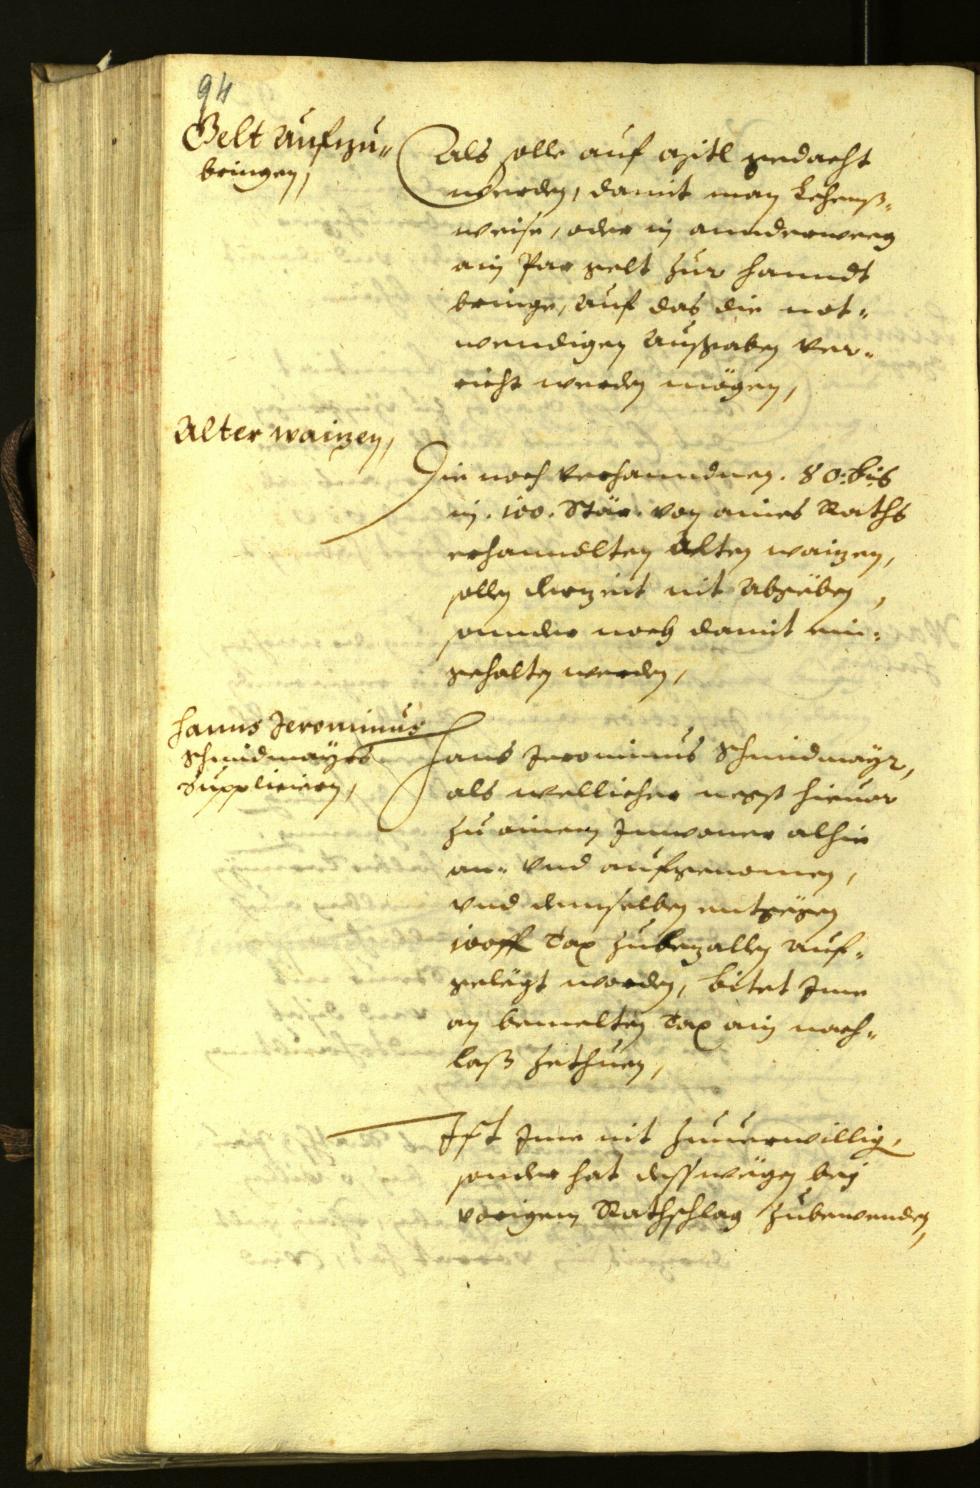 94
Gelt Aufzu-
bringen,
Als solle auf mitl gedacht
werden, damit man Lehenß-
weise, oder in annderweeg
ain Par gelt zur hanndt
bringe, auf das die not-
wendigen Außgaben ver-
richt werden mögen,
Alter waizen,
Die noch verhanndnen . 80. bis
in . 100. Stär. von aines Raths
erhanndlten Alten waizen,
sollen derzeit nit Abgeben,
sonnder noch damit ein-
gehalten werden,
Hanns Jeronimus
Schmidmayrs
Supplicirn,
Hans Jeronimus Schmidmayr,
als wellicher negst hieuor
zu ainem Innwoner alhie
an- vnd aufgenomen,
vnd demselben entgegen
100 fl Tax zubezallen auf-
gelegt worden, bitet Ime
an bemelten Tax ain nach-
laß zethuen,
Ist Ime nit zuuerwillig,
sonder hat desswegen bey
vorigem Rathschlag zubewenden,